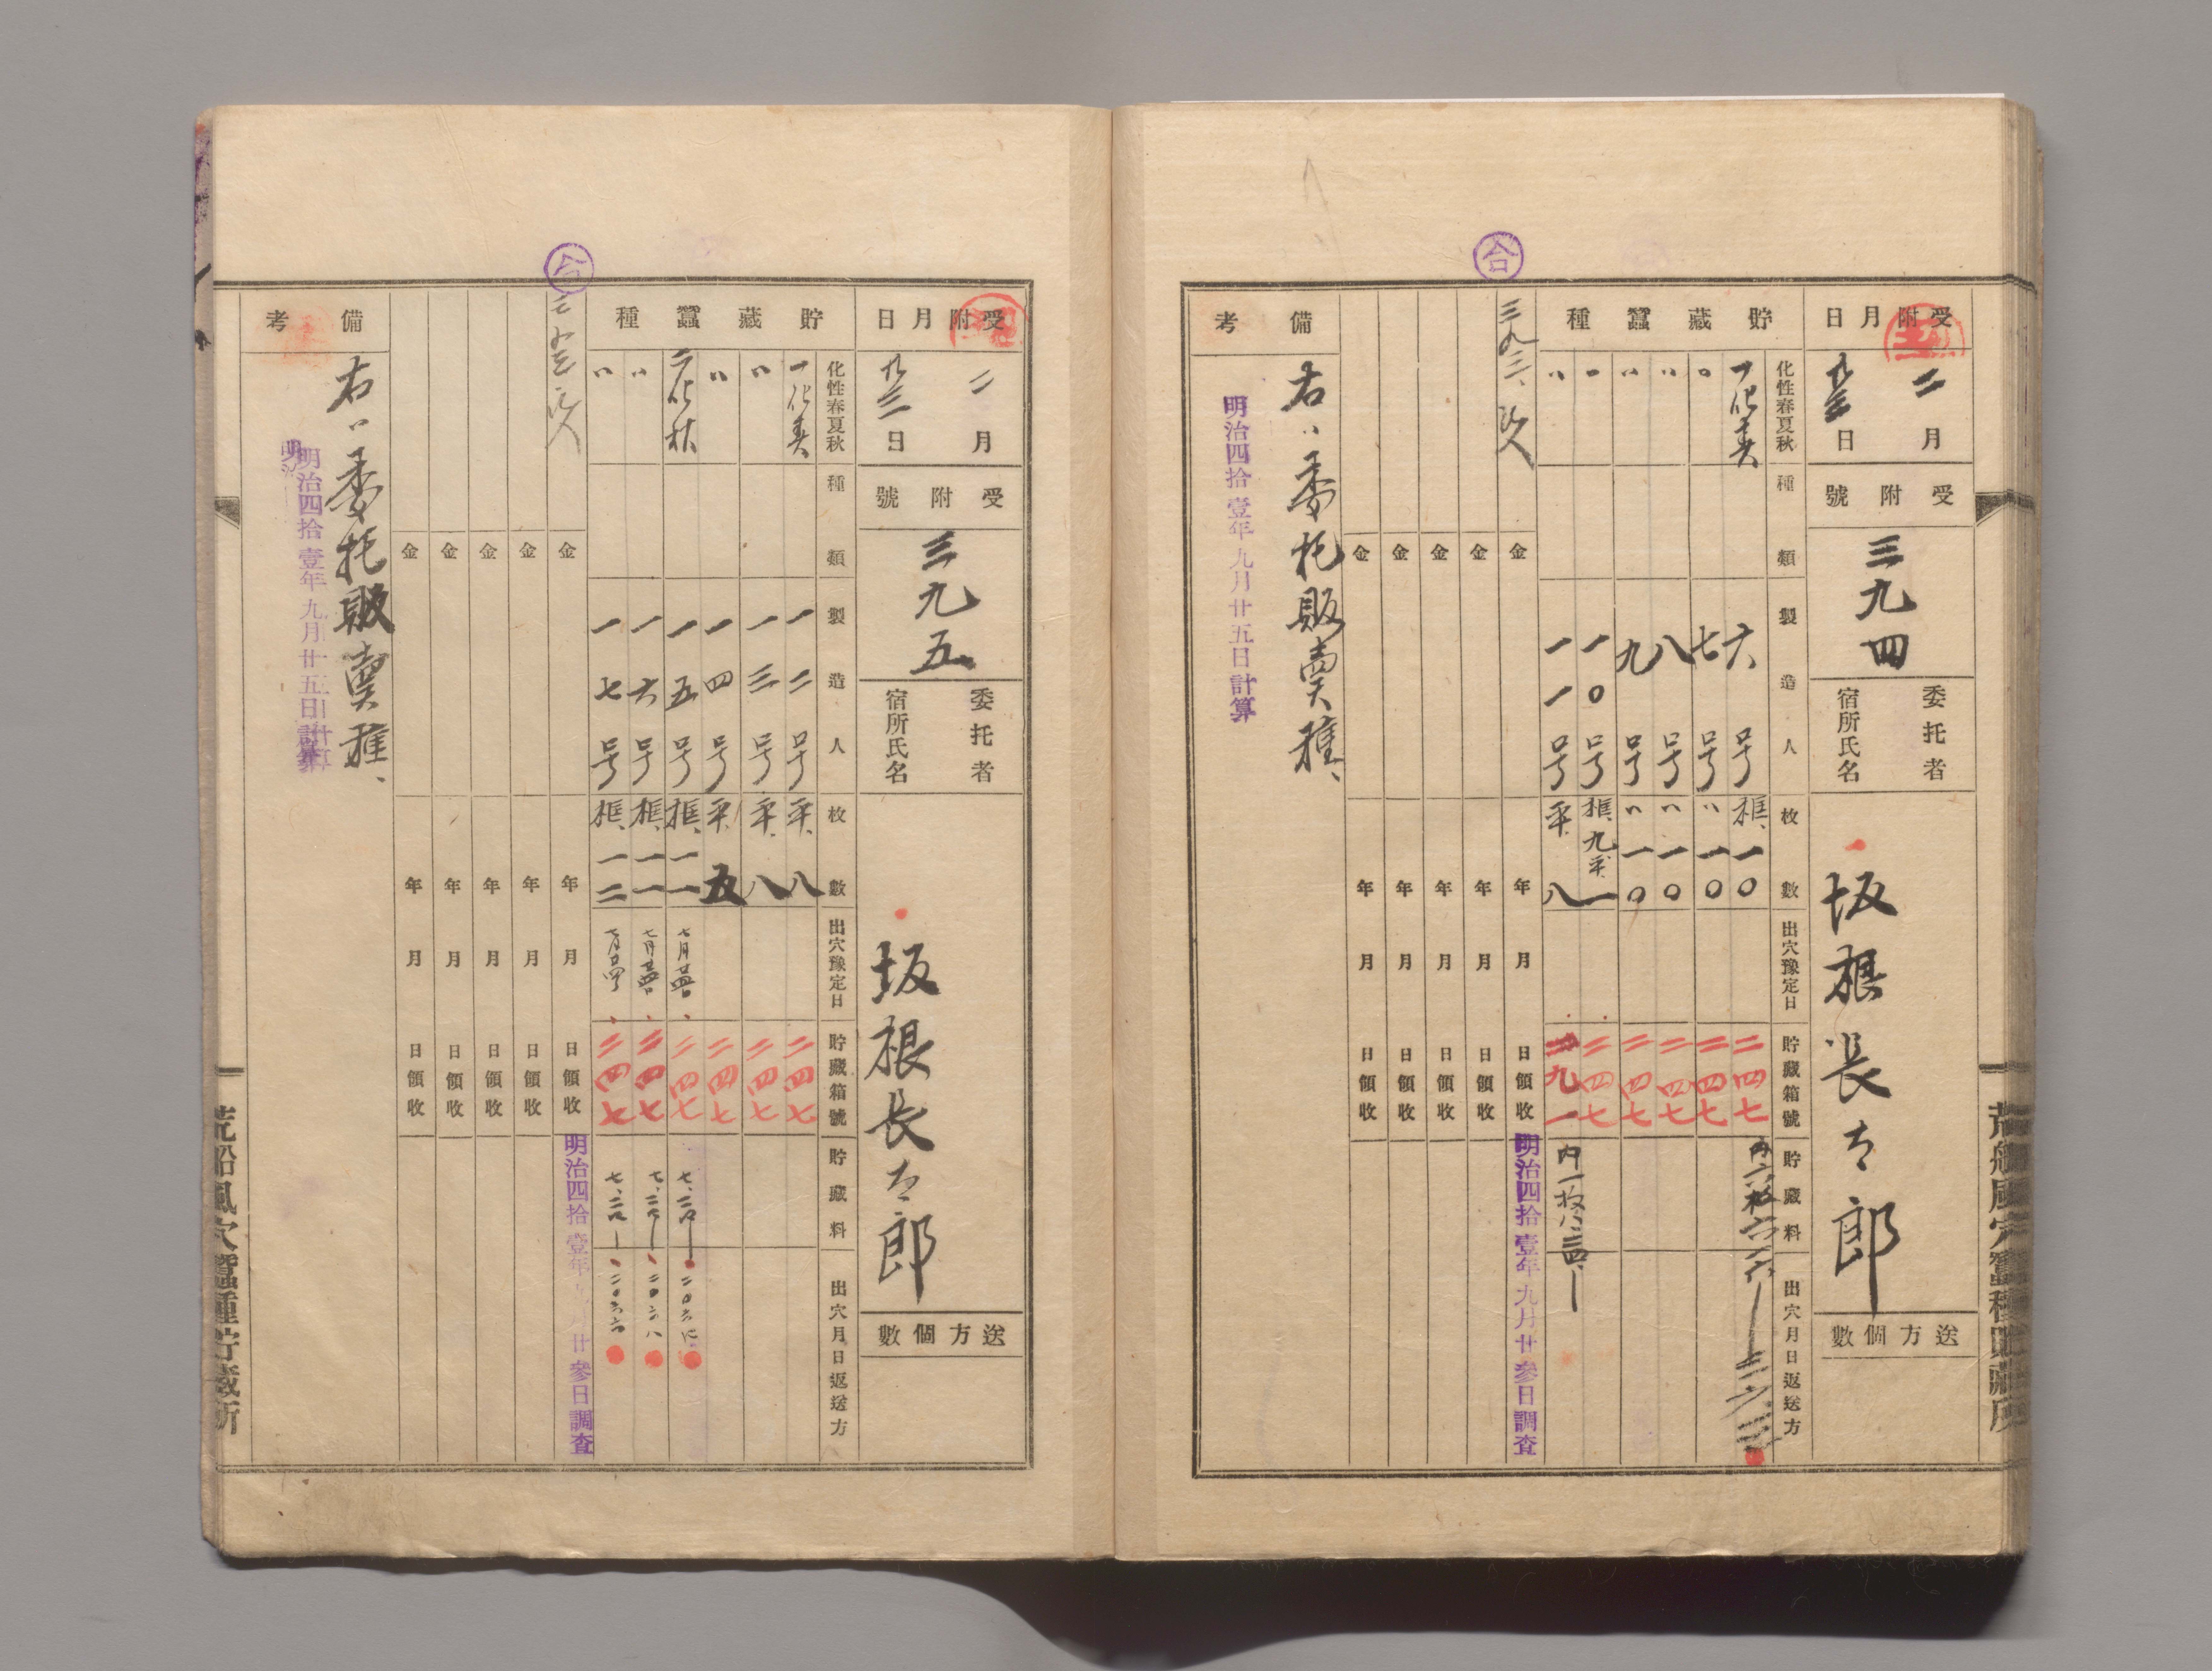 荒船風穴蠶種貯藏所
受附月日
二月廿三日
受附號
三九四
委托者
宿所氏名
坂根長太郎
送方個數
貯藏蠶種
化性春夏秋
種類
製造人
枚數
出穴豫定日
貯藏箱號
貯藏料
出穴月日返送方
一化春 六号 框、一〇 二四七
〃 七号 〃 一〇 二四七
〃 八号 〃 一〇 二四七
〃 九号 〃 一〇 二四七
〃 一〇号 框、九 平、一 二四七
〃 一一号 平、八 二九一
合
三九三、
金 年 月 日領收
明治四拾壹年九月廿參日調査
金 年 月 日領收
金 年 月 日領收
金 年 月 日領收
金 年 月 日領收
備考
右ハ委托販賣種、
明治四拾壹年九月廿五日計算
受附月日
二月廿三日
受附號
三九五
委托者
宿所氏名
坂根長太郎
送方個數
貯藏蠶種
化性春夏秋
種類
製造人
枚數
出穴豫定日
貯藏箱號
貯藏料
出穴月日返送方
一化春 一二号 平、八 二四七
〃 一三号 平、八 二四七
〃 一四号 平、五 二四七
二化秋 一五号 框、一一 二四七
〃 一六号 框、一一 二四七
〃 一七号 框、一二 二四七
合
金 年 月 日領收
明治四拾壹年九月廿參日調査
金 年 月 日領收
金 年 月 日領收
金 年 月 日領收
金 年 月 日領收
備考
右ハ委托販賣種、
明治四拾壹年九月廿五日計算
荒船風穴蠶種貯藏所